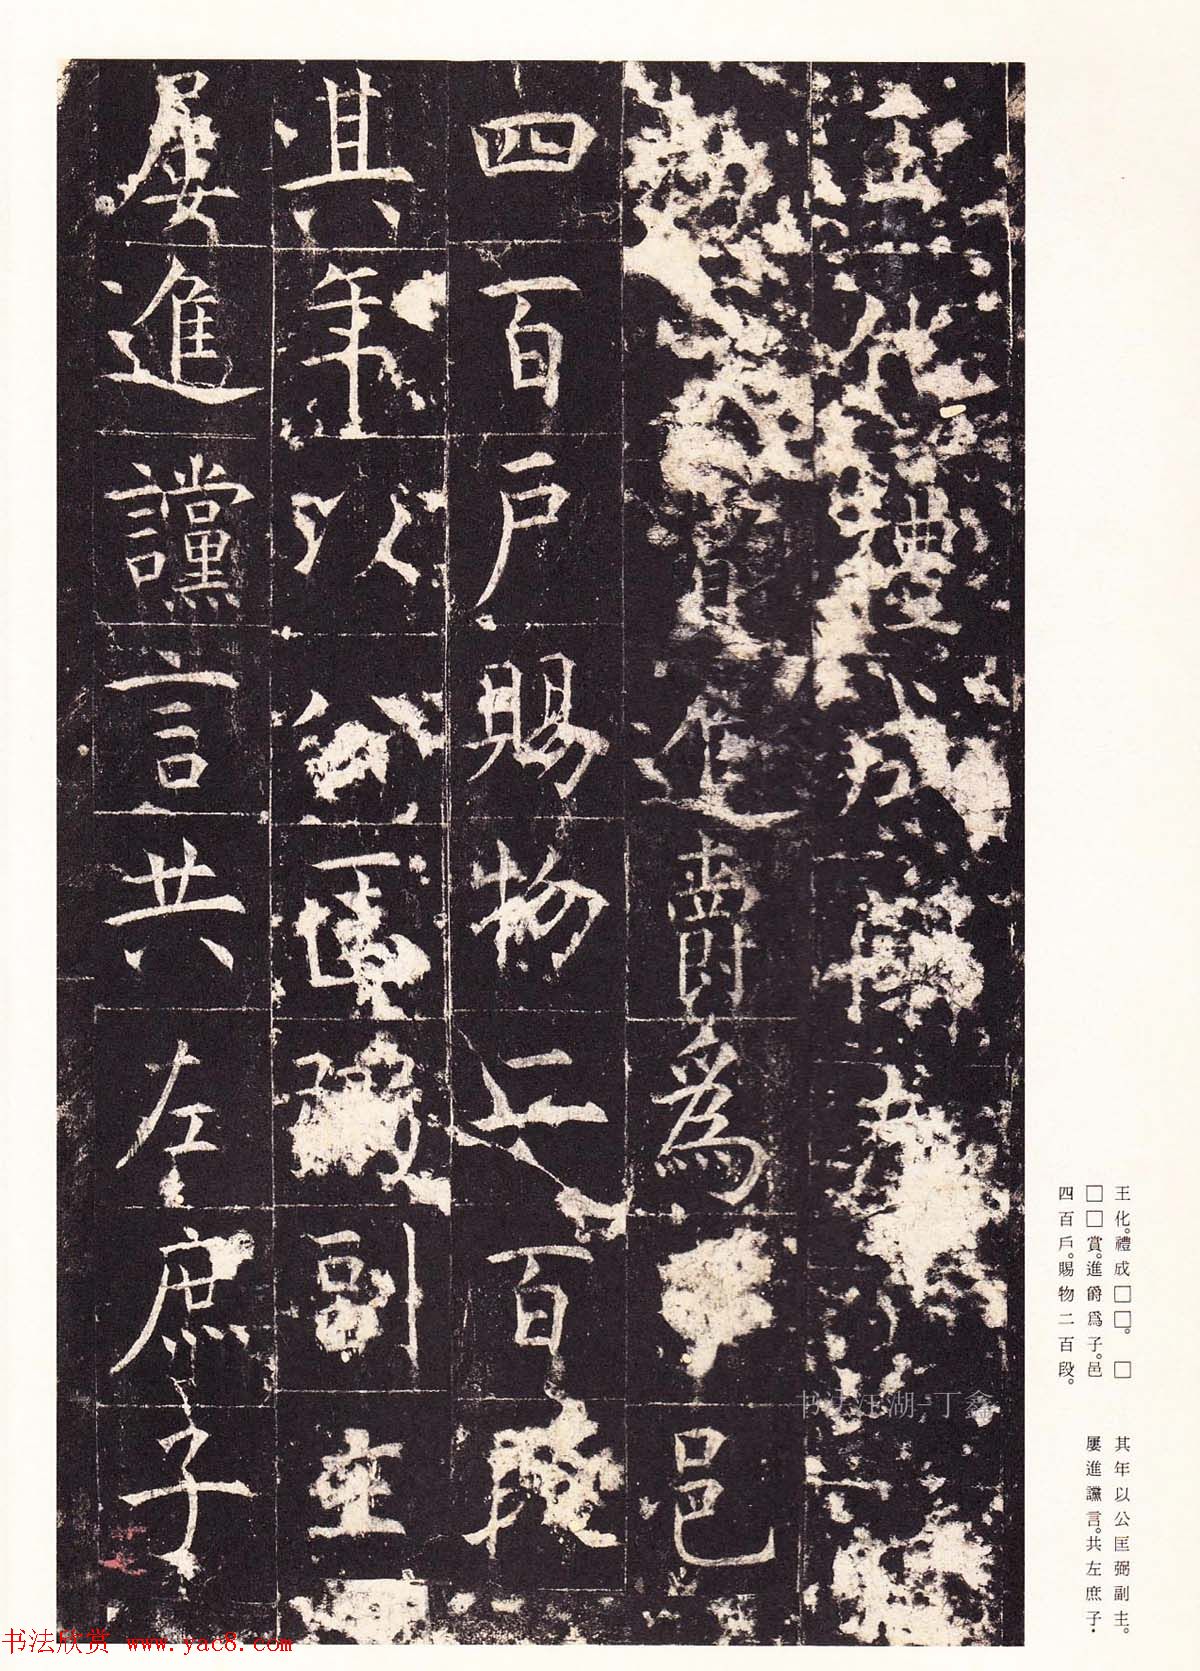 王化禮成
進爵爲子邑
四百戶賜物二百段
其年以公匡弼副主
屢進讜言共左庶子
王化。禮成□□。□
□□賞。進爵爲子。邑
四百戶。賜物二百段。
其年以公匡弼副主。
屢進讜言。共左庶子·
书法江湖-丁鑫
书法欣赏 www.yac8.com